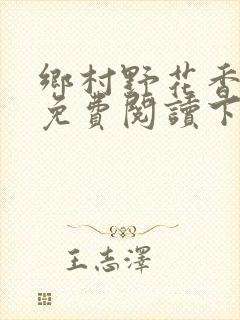 鄉村野花香
免費閱讀下
王志澤